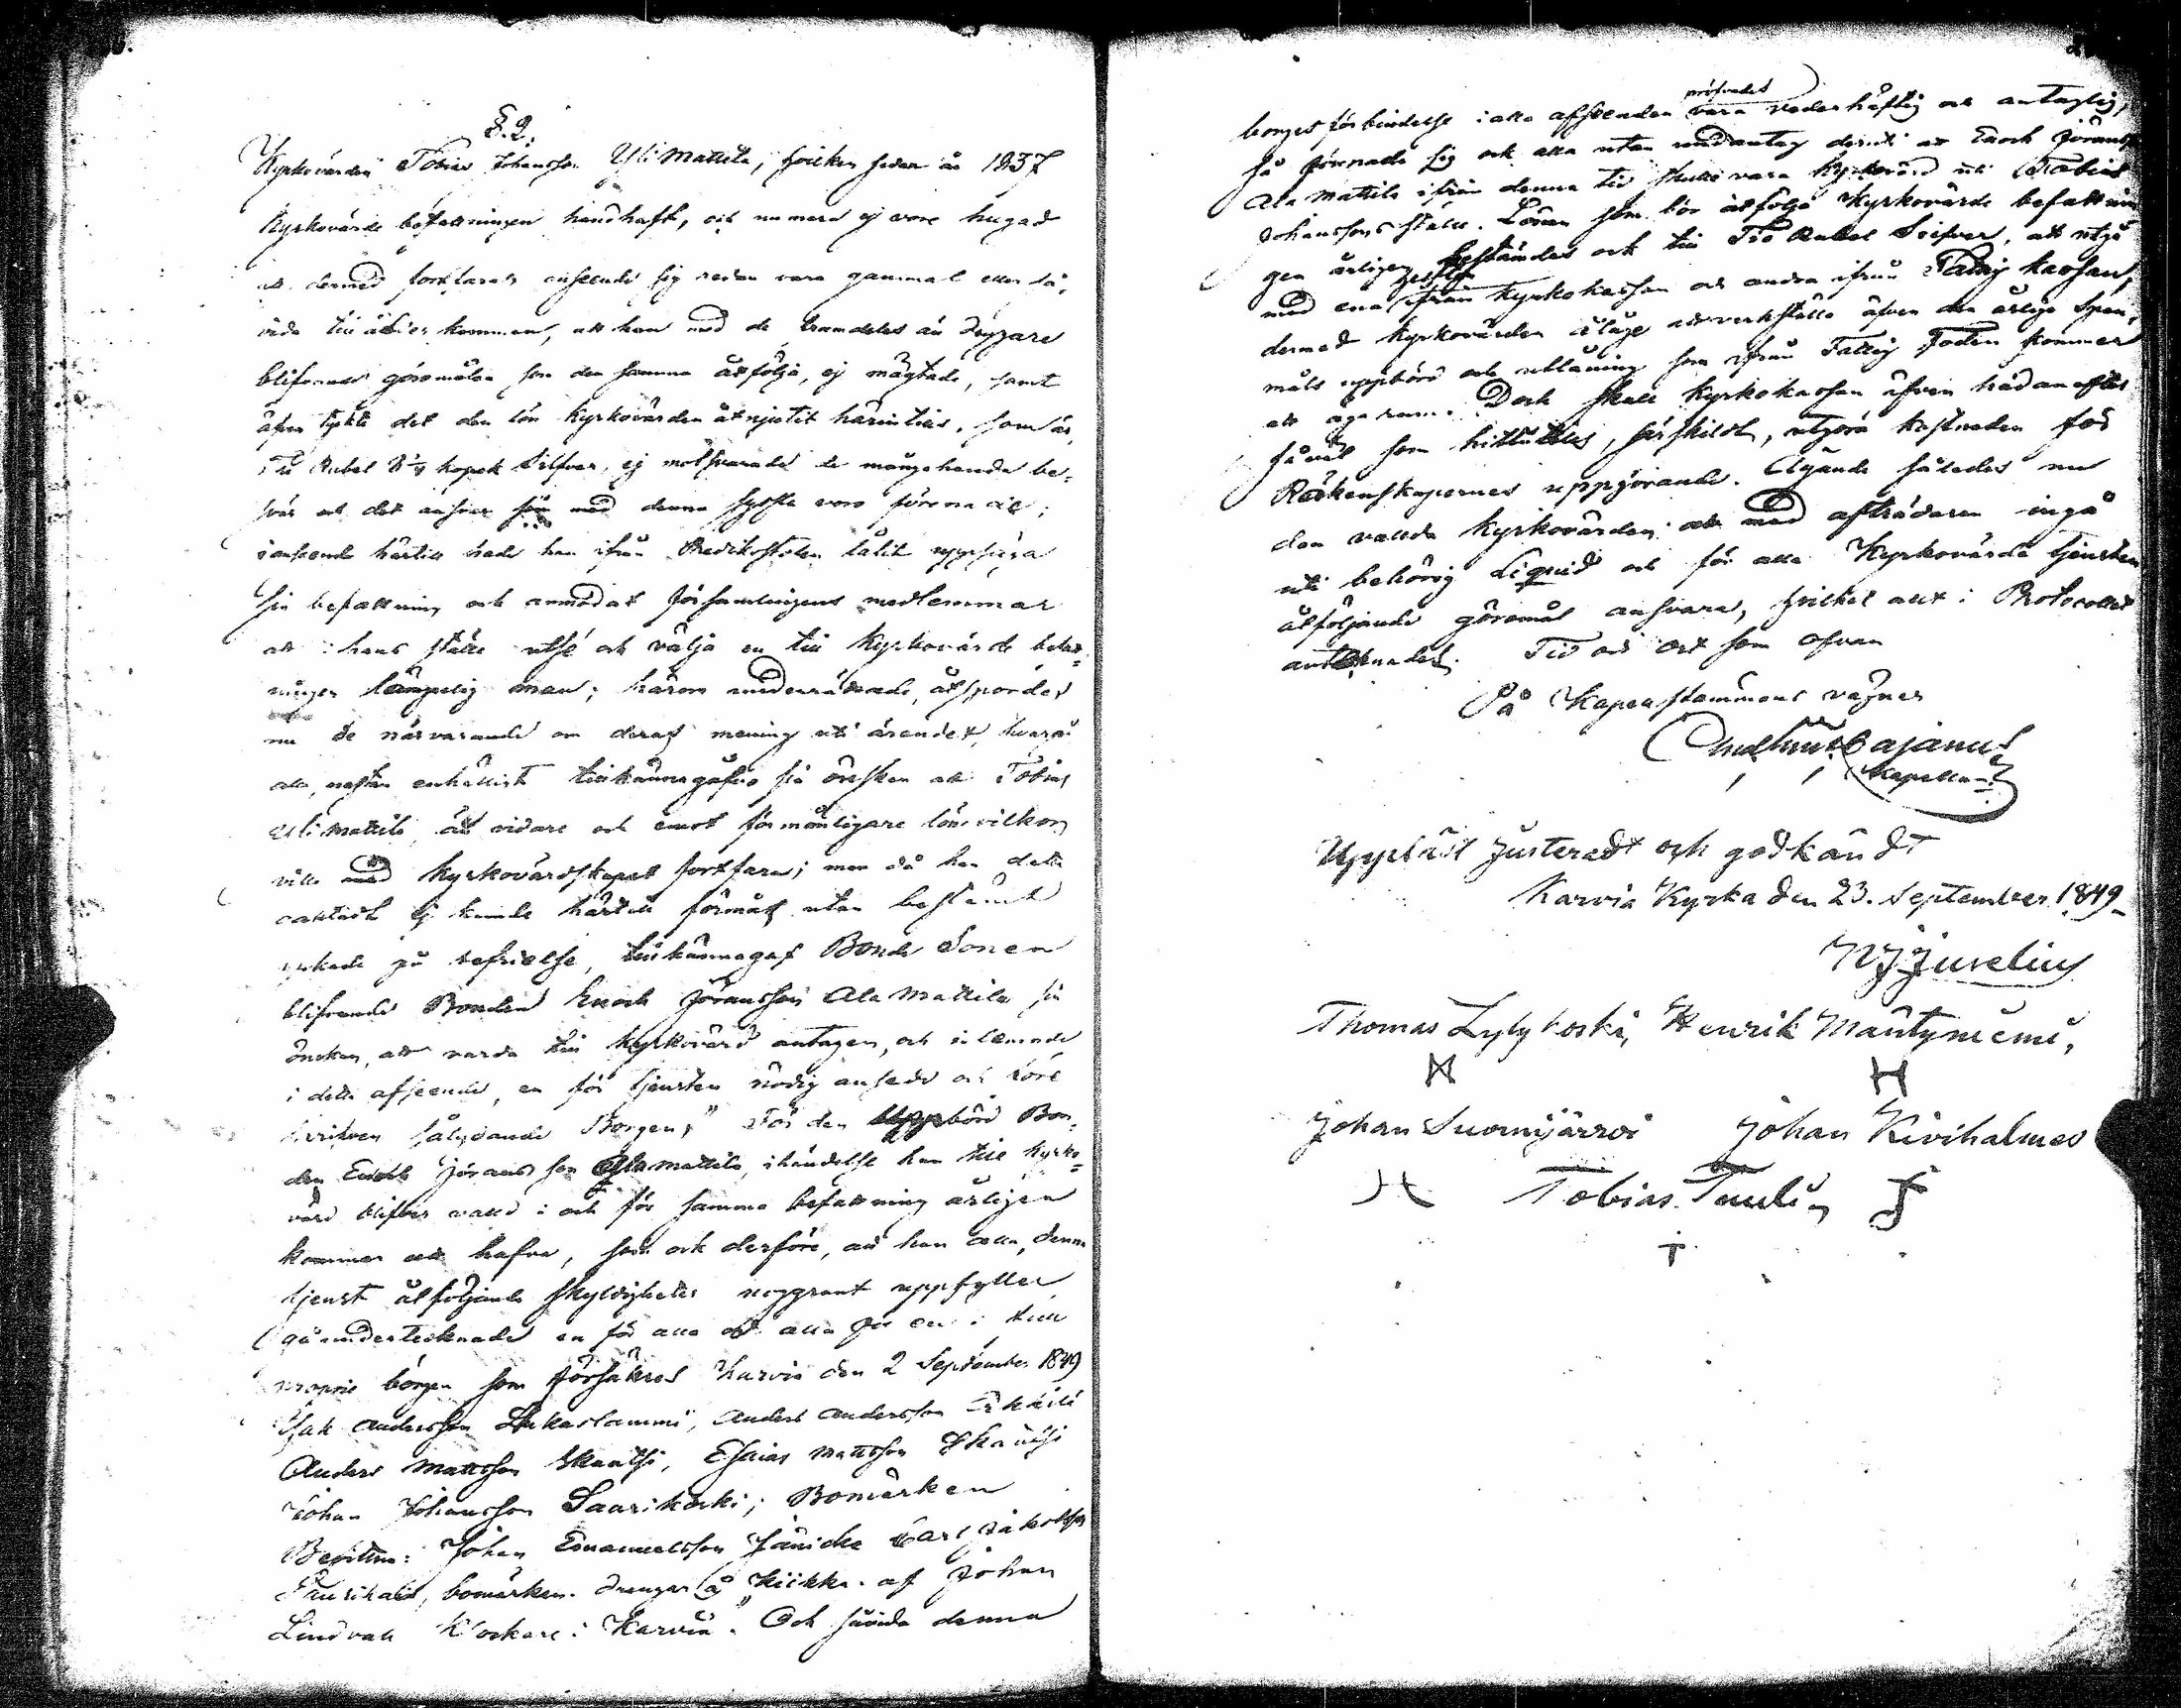 §. 2.
Kyrkovärden Tobias Johansson Yli Mattila, hvilken sedan år 1837
Kyrkovärds befattningen handhaft, och numera ej vore hugad
att dermed fortfara, anseende sig redan vara gammal eller så,
vida till ålder kommen, att han med de framdeles än drygare
blifvande göromålen som den samma åtfölja, ej mägtade, samt
äfven tyckte det den lön Kyrkovärden åtnjutit härintills, som är
Rubel kopek Silfver, ej motsvarade de mångahanda be-
svär och det ansvar som med denna syssla voro förenade;
i anseende härtill hade han ifrån Predikostolen låtit uppsäga
sin befattning och anmodat församlingens medlemmar
att i hans ställe utse och välja en till Kyrkovärds befatt-
ningen lämpelig man; härom underrättade, åtspordes
nu de närvarande om deras mening uti ärendet, hvarå
alla, nästan enhälligt tillkännagåfvo sin önskan att Tobias
Yli Mattila, än vidare och emot förmånligare lönevilkor
ville med Kyrkovärdskapet fortfara; men då han detta
oaktadt ej kunde härtill förmås utan bestämdt
yrkade på befrielse, tillkännagaf Bonde Sonen
blifvande Bonden Enoch Jöransson Ala Mattila sin
önskan, att varda till Kyrkovärd antagen, och inlemnade
i detta afseende, en för tjensten nödig ansedd och
skriften sålydande Borgen; "För den uppbörd Bon-
den Enoch Jöransson Ala Mattila, i händelse han till Kyrko-
värd blifver vald i och för samma befattning årligen
kommer att hafva, som ock derföre, att han alla, denna
tjenst åtföljande skyldigheter noggrant uppfyller
gå undertecknade en för alla och alla för en i full
proprie borgen som försäkras Karvia den 2 September 1849
Isak Andersson Lukaslammi, Anders Andersson Erkkilä
Anders Mattsson Skantsi, Esaias Mattsson Skantsi
Johan Johansson Saarikoski; Bomärken
Bevittna: Johan Emanuelsson Carl Jakobsson
bomärken. Drengar å Kiikka. af Johan
Lindvall Klockare i Karvia". Och såvida denna
borgesförbindelse i alla afseenden pröfvades vara vederhäftig och antaglig,
så förenade sig ock alla utan undantag deruti att Enoch Jöransson
Ala Mattila ifrån denna tid skulle vara Kyrkovärd uti Tobias
Johanssons ställe. Lönen som bör åtfölja Kyrkovärds befattnin-
gen årligen bestämdes ock till Tio Rubel Silfver, att utgå
med ena hälften ifrån Kyrkokassan och andra ifrån Fattig kassan,
dermed Kyrkovärden ålåge att verkställa äfven den årliga Span-
måls uppbörd och utlåning som ifrån Fattig Foden kommer
att äga rum. Dock skall Kyrkokassan äfven hädanefter
såväl som hittills, särskildt, utgöra kostnaden för
Räkenskapernas uppgörande. Ägande således nu
den valda Kyrkovärden att med afträdaren ingå
uti behörig Liquid och för alla Kyrkovärds tjensten
åtföljande göromål ansvara, hvilket allt i Protocollet
antecknades. Tid och Ort som ofvan
På Kapellstämmans vägnar
Cajanus
Kapellan
Uppläst Justeradt och godkändt
Karvia Kyrka den 23. September 1849.
Juselius
Thomas Lylykoski, Henrik Mäntyniemi,
Johan Suomijärvi Johan Kivihalmes
Tobias Tuuli